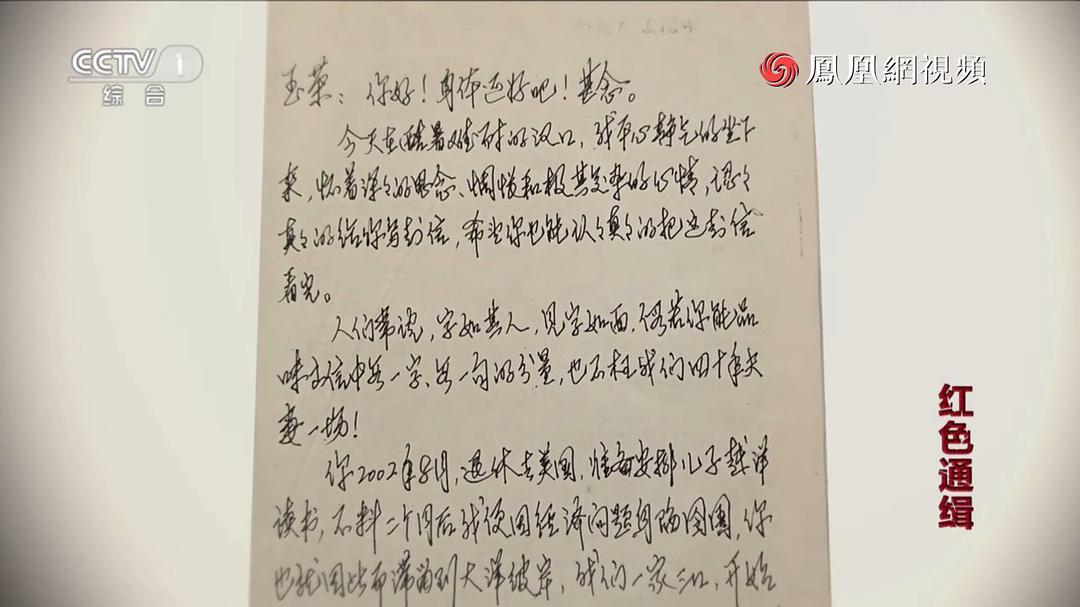 CCTV 1
综合
鳳凰網視頻
玉荣：你好！身体还好吧！甚念。
今天在酷暑难耐的汉口，我平心静气的坐下
来，怀着深深的思念、惆怅和极其复杂的心情，认々
真々的给你写封信，希望你也能认々真々的把这封信
看完。
人们常说，字如其人，见字如面，倘若你能品
味出信中每一字、每一句的分量，也不枉我们四十年夫
妻一场！
你2002年8月，退休去美国，准备安排儿子越洋
读书，不料二个月后我便因经济问题身陷囹圄，你
也就因此而滞留到大洋彼岸，我们一家三口，开始
红色通缉